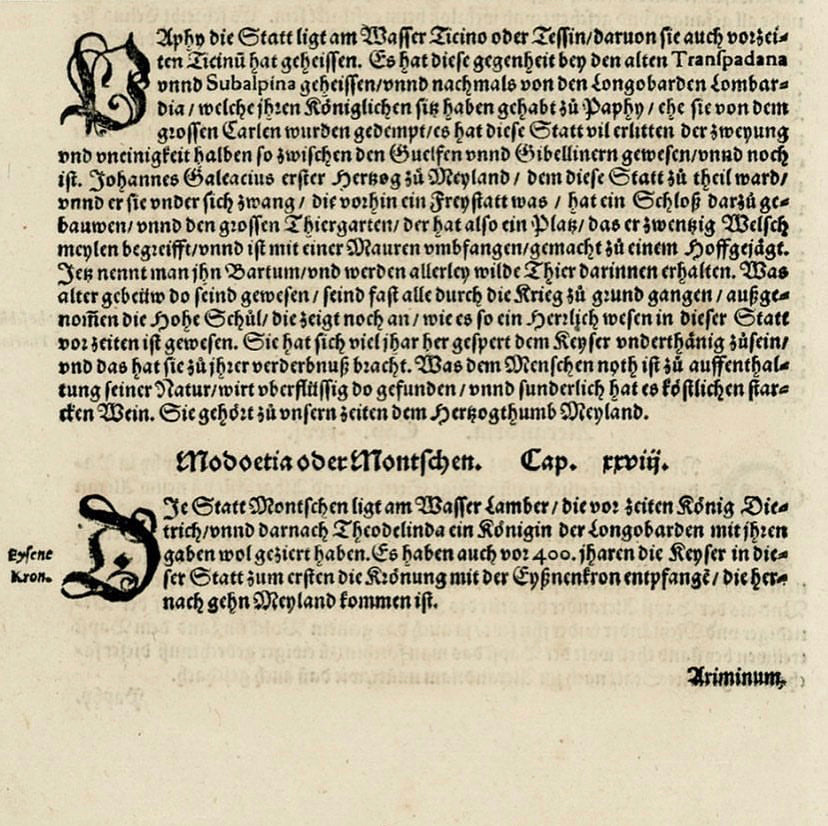 PAphy die Statt ligt am Wasser Ticino oder Tessin/daruon sie auch vorzei⸗
ten Ticinū hat geheissen. Es hat diese gegenheit bey den alten Transpadana
vnnd Subalpina geheissen/vnnd nachmals von den Longobarden Lombar⸗
dia / welche jhren Königlichen sitz haben gehabt zů Paphy / ehe sie von dem
grossen Carlen wurden gedempt/es hat diese Statt vil erlitten der zweyung
vnd vneinigkeit halben so zwischen den Guelfen vnnd Gibellinern gewesen/vnnd noch
ist. Johannes Galeacius erster Hertzog zů Meyland / dem diese Statt zů theil ward/
vnnd er sie vnder sich zwang / die vorhin ein Freystatt was / hat ein Schloß darzů ge⸗
bauwen/ vnnd den grossen Thiergarten/ der hat also ein Platz/ das er zwentzig Welsch
meylen begreifft/vnnd ist mit einer Mauren vmbfangen/gemacht zů einem Hoffgejägt.
Jetz nennt man jhn Bartum/vnd werden allerley wilde Thier darinnen erhalten. Was
alter gebeüw do seind gewesen / seind fast alle durch die Krieg zů grund gangen / außge⸗
nom̄en die Hohe Schůl/ die zeigt noch an / wie es so ein Herrlich wesen in dieser Statt
vor zeiten ist gewesen. Sie hat sich viel jhar her gespert dem Keyser vnderthänig zůsein/
vnd das hat sie zů jhrer verderbnuß bracht. Was dem Menschen noth ist zů auffenthal⸗
tung seiner Natur/wirt vberflüssig do gefunden / vnnd sunderlich hat es köstlichen star⸗
cken Wein. Sie gehört zů vnsern zeiten dem Hertzogthumb Meyland.
Modoetia oder Montschen. Cap. xxviij.
DJe Statt Montschen ligt am Wasser Lamber / die vor zeiten König Die⸗
trich/vnnd darnach Theodelinda ein Königin der Longobarden mit jhren
gaben wol geziert haben. Es haben auch vor 400. jharen die Keyser in die⸗
ser Statt zum ersten die Krönung mit der Eyßnenkron entpfangē / die her⸗
nach gehn Meyland kommen ist.
Eysene
Kron.
Ariminum,